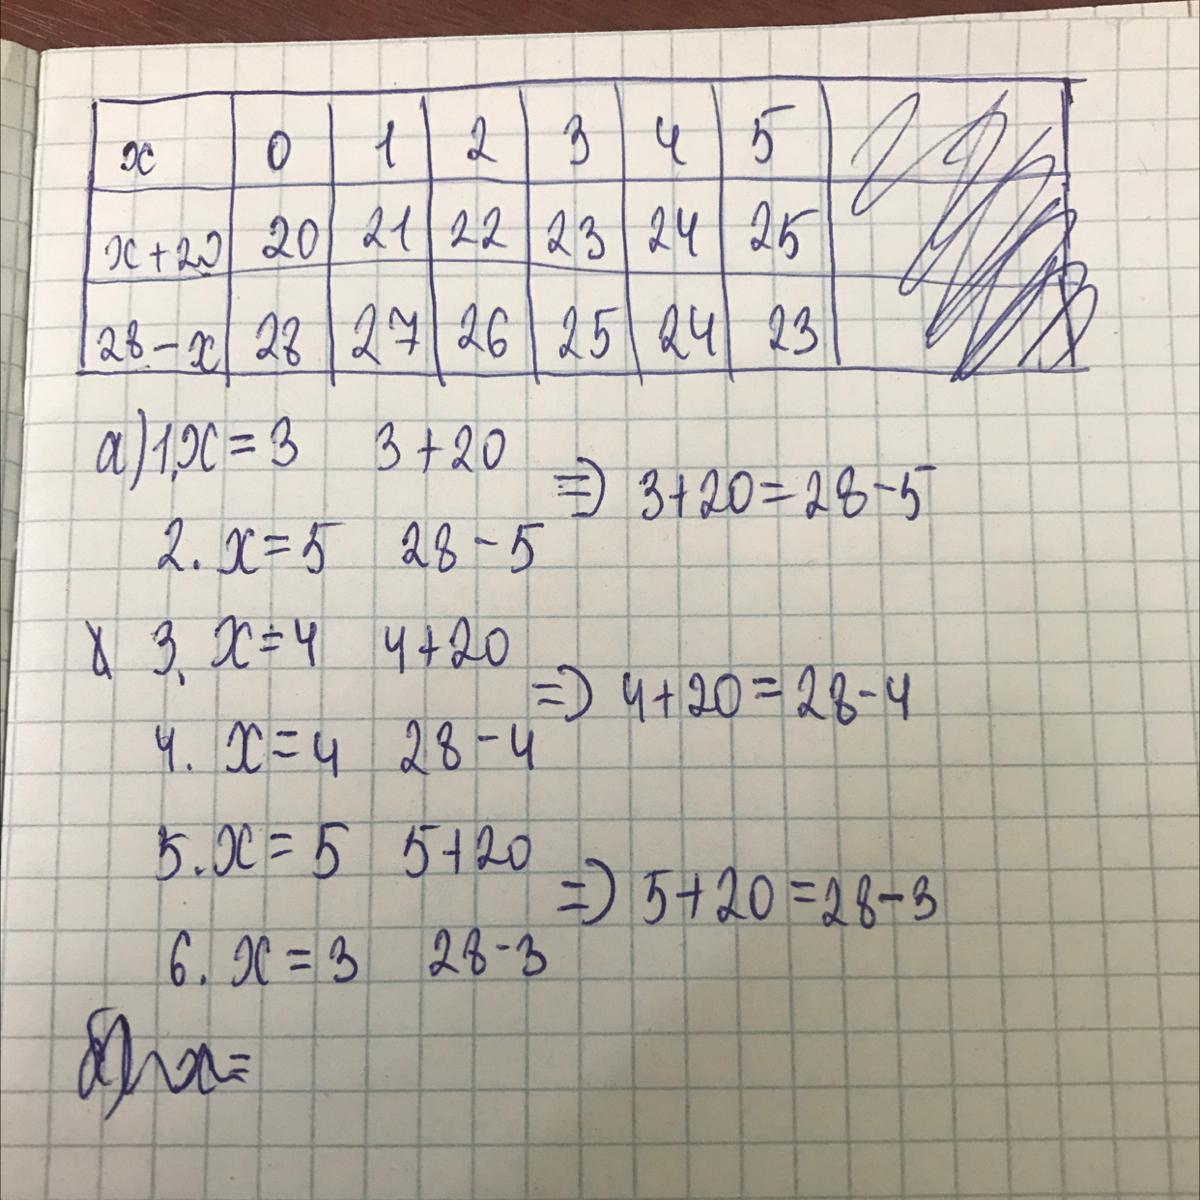 х 0 1 2 3 4 5
х+20 20 21 22 23 24 25
28-х 28 27 26 25 24 23
а) 1. х=3 3+20
=> 3+20=28-5
2. х=5 28-5
3. х=4 4+20
=> 4+20=28-4
4. х=4 28-4
5. х=5 5+20
=> 5+20=28-3
6. х=3 28-3
х=